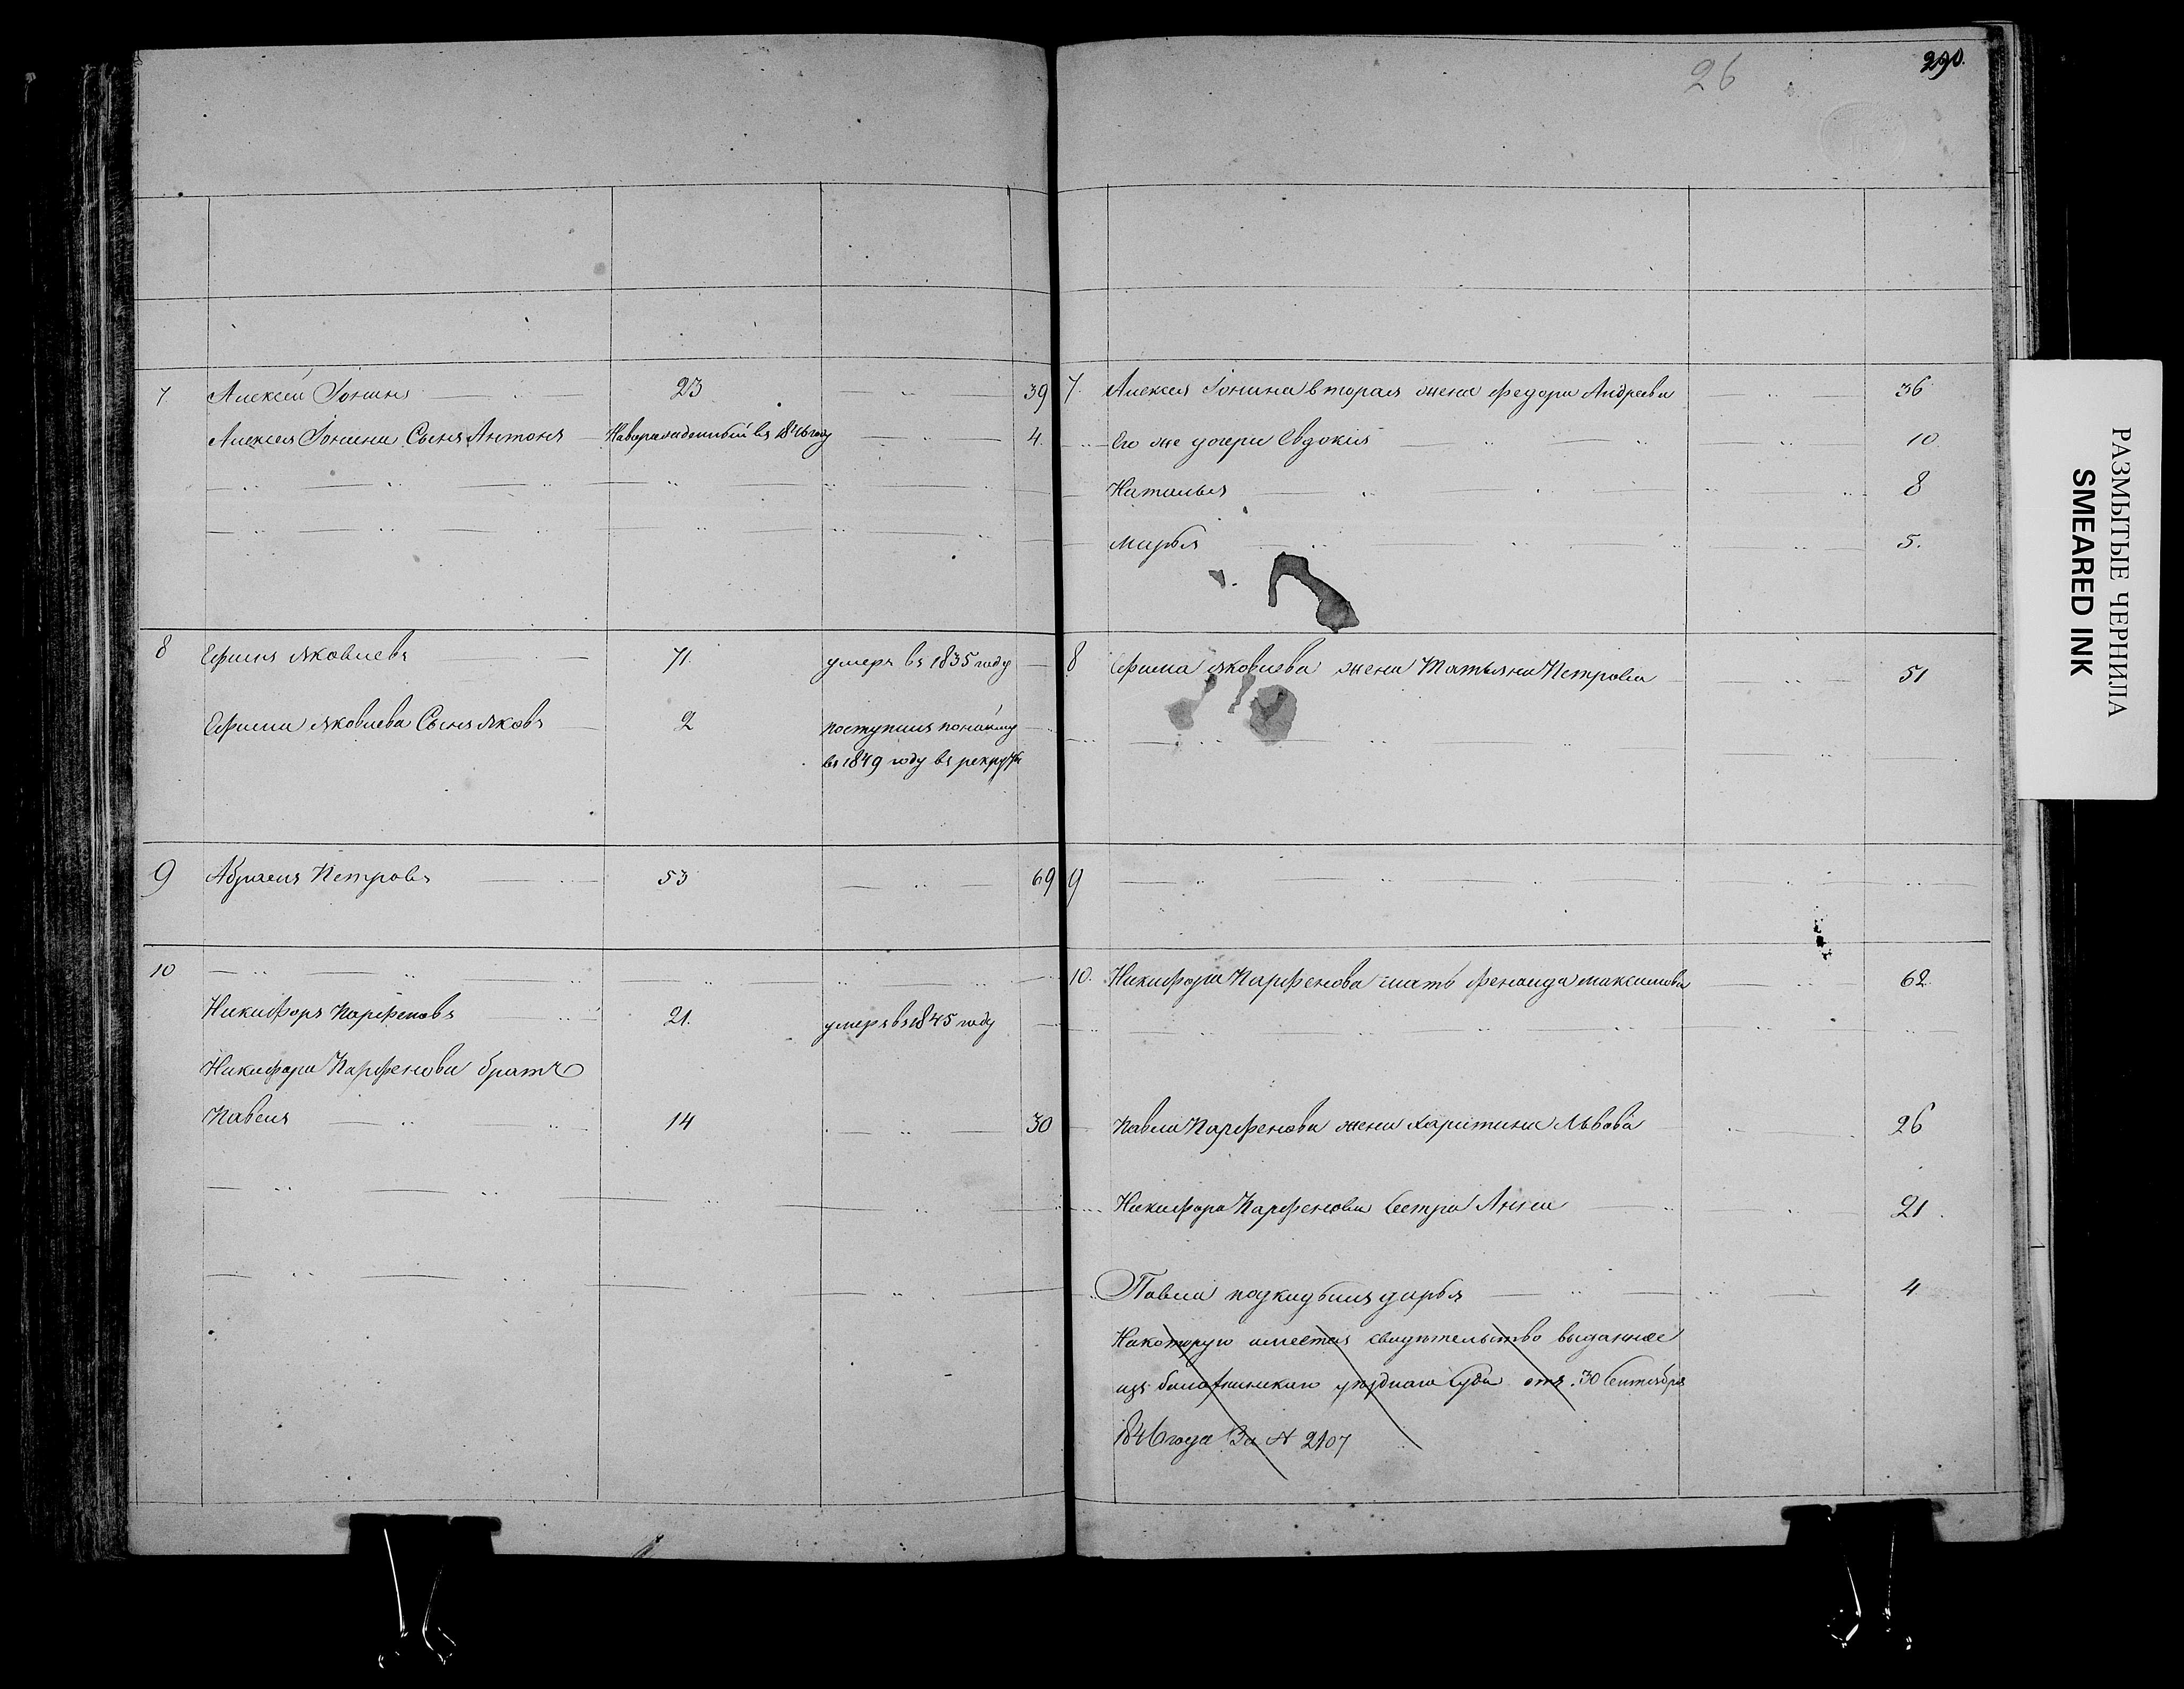 26
290.
7 Алексей Іонинъ 23 39
Алексея Іонина Сынъ Антонъ Наворажденный въ 1846 году 4.
8 Ефимъ Яковлевъ 71. умеръ въ 1835 году
Ефима Яковлева Сынъ Яковъ 2 поступилъ понайму
въ 1849 году въ рекруты
9 Абрамъ Петровъ 53 69
10
Никифоръ Парфеновъ 21. умеръ въ 1845 году
Никифора Парфенова братъ
Павелъ 14 30
7. Алексея Іонина вторая жена Федора Андреева 36
Его же дочери Евдокия 10.
Наталья 8
Марья 5.
8 Ефима Яковлева жена Татьяна Петрова 51
9
10. Никифора Парфенова мать Фенаида Максимова 62
Павла Парфенова жена Харитина Львова 26
Никифора Парфенова Сестра Анна 21.
Павла подкидышъ дарья 4
Накоторую имеется свидѣтельство выданное
изъ уѣзднаго Суда отъ 30 Сентября
1846 года За № 2107
РАЗМЫТЫЕ ЧЕРНИЛА
SMEARED INK